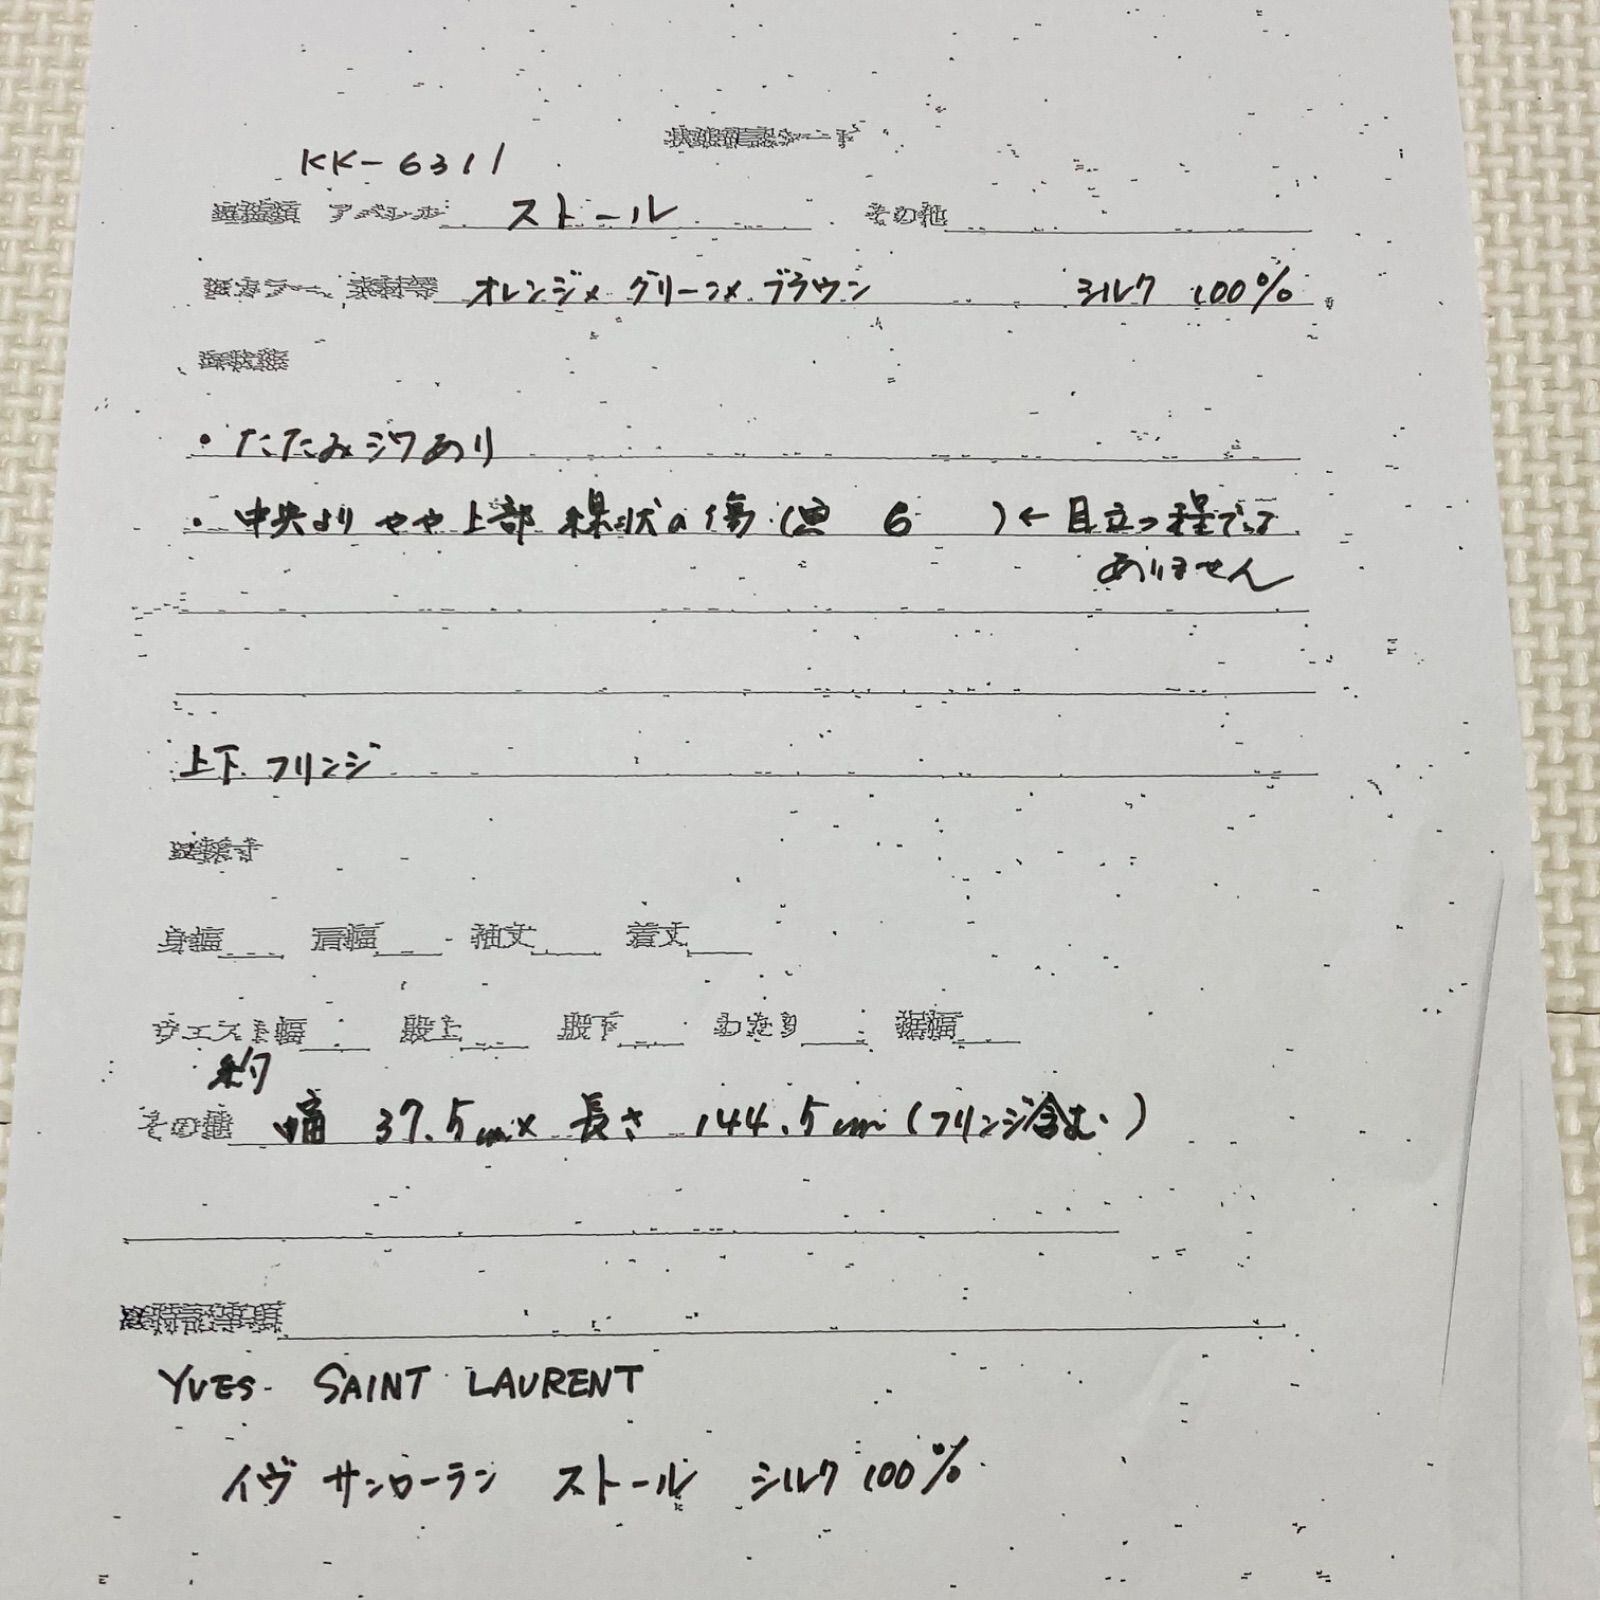 状態確認シート
KK-6311
アパレル ストール その他
カラー 素材等 オレンジ×グリーン×ブラウン シルク 100%
・たたみジワあり
・中央よりやや上部 線状の傷 ( 6 ) ← 目立つ程では
ありません
上下フリンジ
身幅 肩幅 袖丈 着丈
ウエスト幅 股上 股下 わたり 裾幅
約
その他 幅 37.5cm× 長さ 144.5cm (フリンジ含む)
※特記事項
YVES SAINT LAURENT
イヴ サンローラン ストール シルク100%